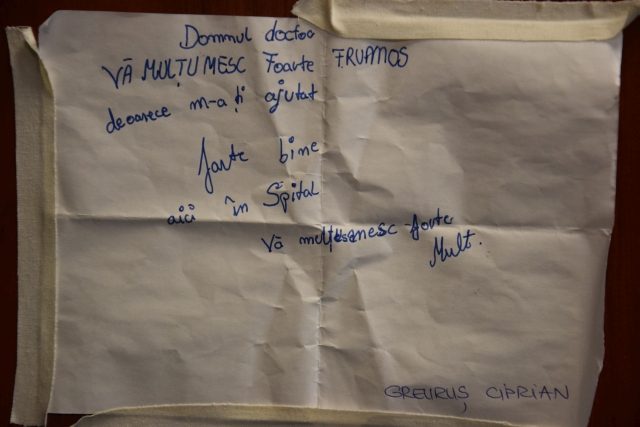 Domnul doctor
VĂ MULȚUMESC Foarte FRUMOS
deoarece m-a ți ajutat
farte bine
aici în Spital
Vă mulțumesc foarte
Mult.
GREURUȘ CIPRIAN